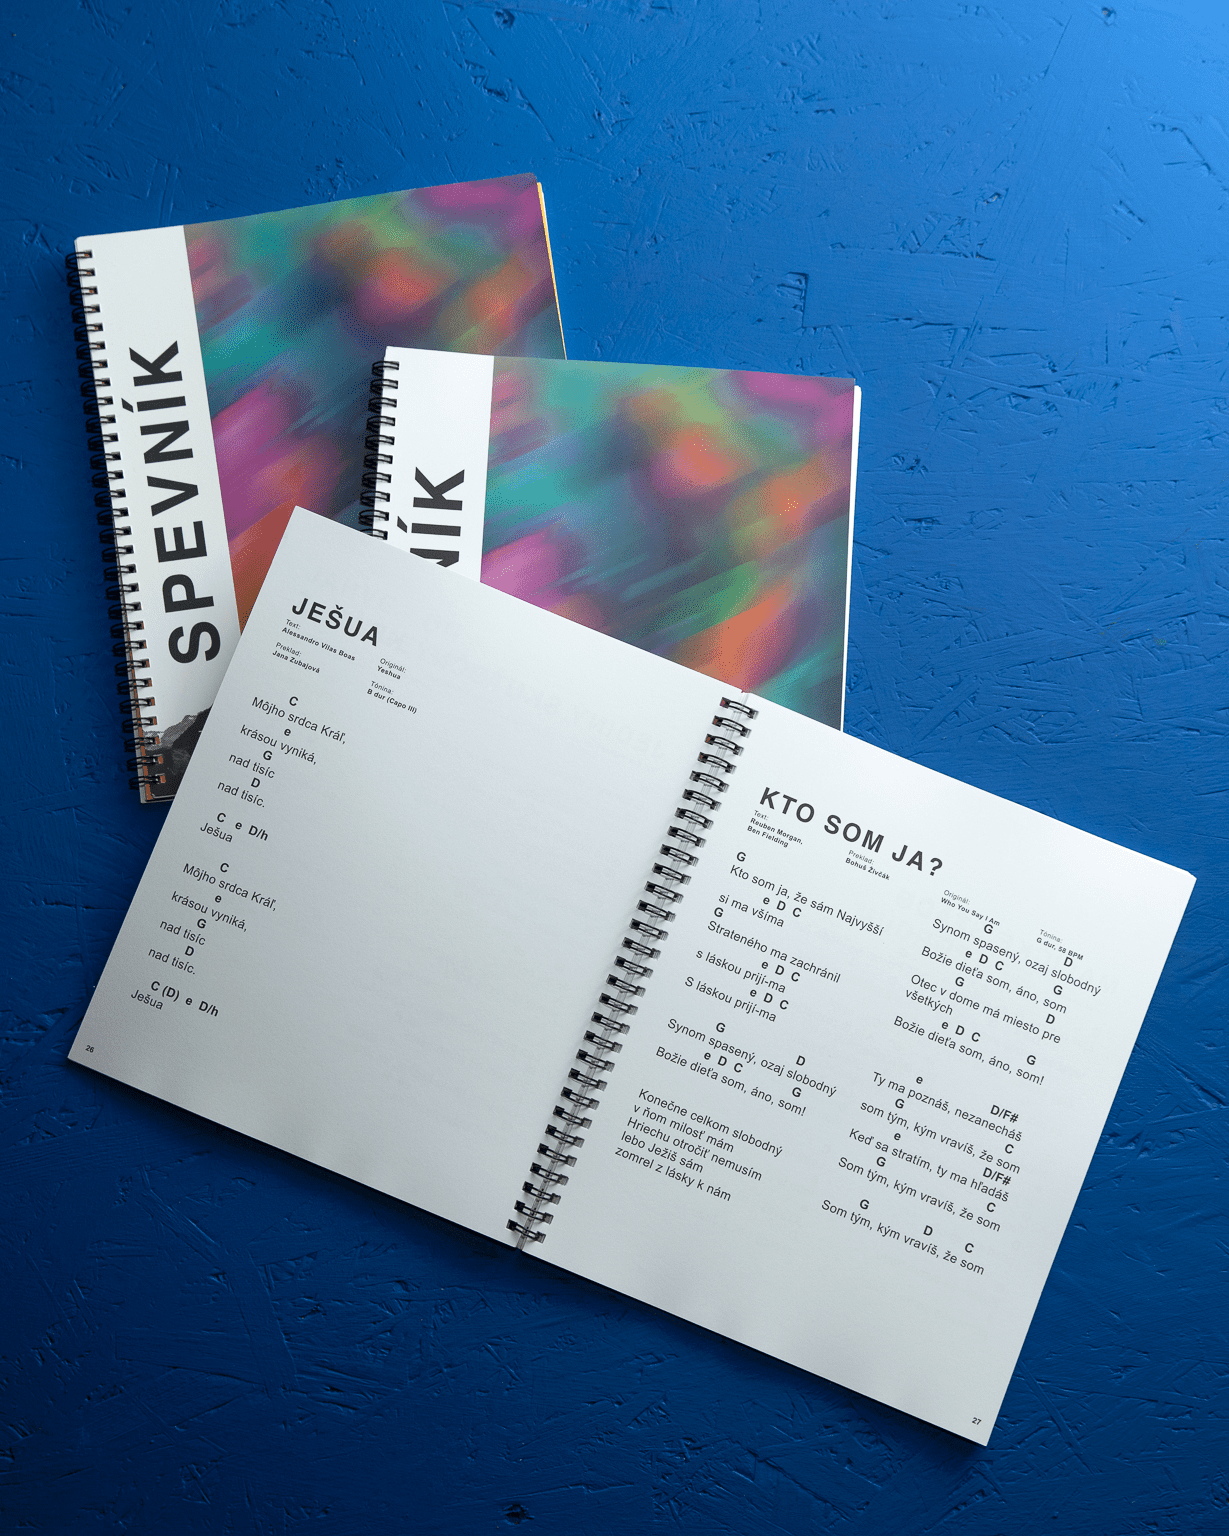 SPEVNÍK
NÍK
JEŠUA
Text:
Alessandro Vilas Boas
Originál:
Yeshua
Preklad:
Jana Zubajová
Tónina:
B dur (Capo III)
C
Môjho srdca Kráľ,
e
krásou vyniká,
G
nad tisíc
D
nad tisíc.
C e D/h
Ješua
C
Môjho srdca Kráľ,
e
krásou vyniká,
G
nad tisíc
D
nad tisíc.
C (D) e D/h
Ješua
26
KTO SOM JA?
Text:
Reuben Morgan,
Ben Fielding
Preklad:
Bohuš Živčák
Originál:
Who You Say I Am
Tónina:
G dur, 58 BPM
G
Kto som ja, že sám Najvyšší
e D C
si ma všíma
G
Strateného ma zachránil
e D C
s láskou prijí-ma
e D C
S láskou prijí-ma
G
Synom spasený, ozaj slobodný
e D C D
Božie dieťa som, áno, som!
G
Konečne celkom slobodný
v ňom milosť mám
Hriechu otročiť nemusím
lebo Ježiš sám
zomrel z lásky k nám
G
Synom spasený, ozaj slobodný
e D C D
Božie dieťa som, áno, som
G G
Otec v dome má miesto pre
všetkých D
e D C
Božie dieťa som, áno, som!
G
e
Ty ma poznáš, nezanecháš
G D/F#
som tým, kým vravíš, že som
e C
Keď sa stratím, ty ma hľadáš
G D/F#
Som tým, kým vravíš, že som
C
G D C
Som tým, kým vravíš, že som
27